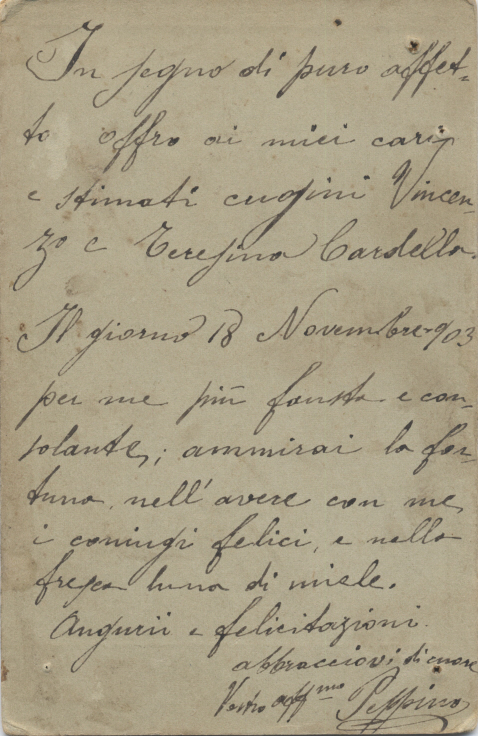 In segno di puro affet-
to offro ai miei cari
e stimati cugini Vincen-
zo e Teresina Cardella.
Il giorno 18 Novembre 903
per me più fausto e con-
solante; ammirai la for-
tuna nell'avere con me
i coniugi felici, e nella
fresca luna di miele.
Augurii e felicitazioni.
abbracciovi di cuore
Vostro affmo Peppino